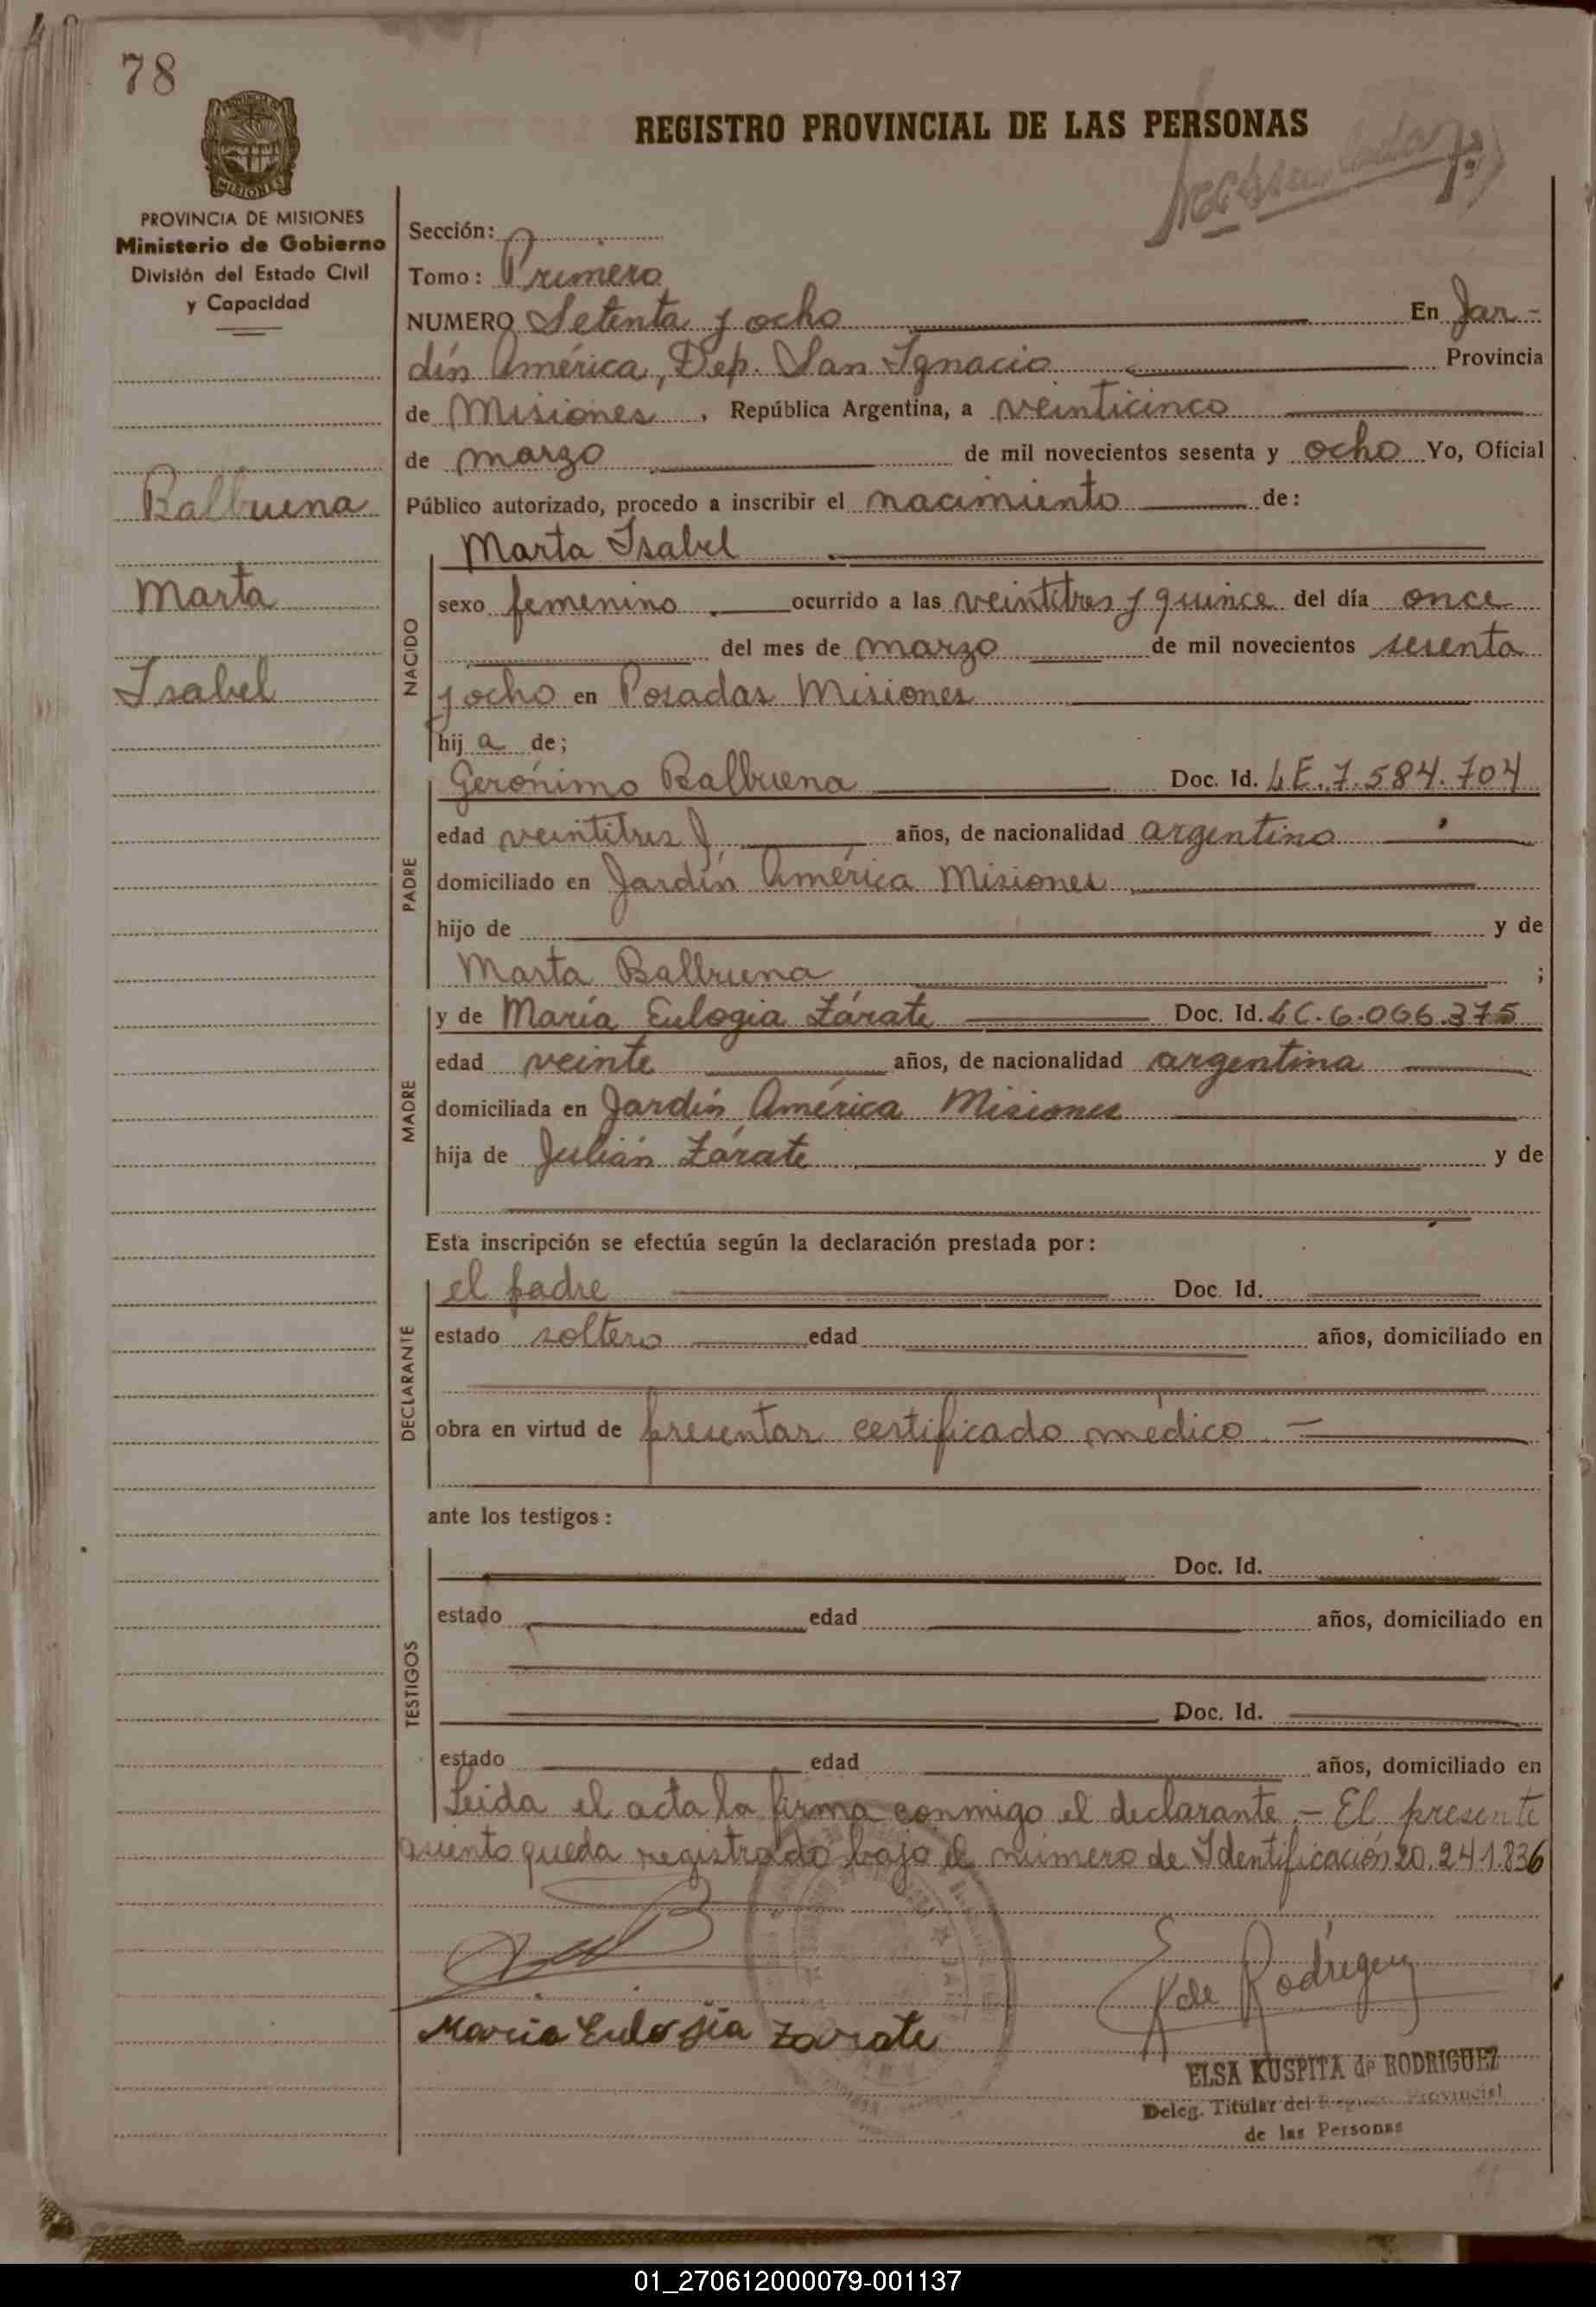 78
REGISTRO PROVINCIAL DE LAS PERSONAS
PROVINCIA DE MISIONES
Ministerio de Gobierno
División del Estado Civil
y Capacidad
Sección:
Tomo: Primero
NUMERO Setenta y ocho En Jar-
dín América, Dep. San Ignacio Provincia
de Misiones, República Argentina, a veinticinco
de marzo de mil novecientos sesenta y ocho Yo, Oficial
Público autorizado, procedo a inscribir el nacimiento de:
Balbuena
Marta
Isabel
NACIDO
Marta Isabel
sexo femenino ocurrido a las veintitres y quince del día once
del mes de marzo de mil novecientos sesenta
y ocho en Posadas Misiones
hija de;
PADRE
Gerónimo Balbuena Doc. Id. LE. 7.584.704
edad veintitres años, de nacionalidad argentino
domiciliado en Jardín América Misiones
hijo de y de
Marta Balbuena ;
MADRE
y de María Eulogia Zárate Doc. Id. LC. 6.066.375
edad veinte años, de nacionalidad argentina
domiciliada en Jardín América Misiones
hija de Julián Zárate y de
Esta inscripción se efectúa según la declaración prestada por:
DECLARANTE
el padre Doc. Id.
estado soltero edad años, domiciliado en
obra en virtud de presentar certificado médico
ante los testigos:
TESTIGOS
Doc. Id.
estado edad años, domiciliado en
Doc. Id.
estado edad años, domiciliado en
Leida el acta la firma conmigo el declarante.- El presente
asiento queda registrado bajo el número de Identificación 20.241.836
E K de Rodriguez
Maria Eulojia Zarate
ELSA KUSPITA de RODRIGUEZ
Deleg. Titular del Registro Provincial
de las Personas
01_270612000079-001137